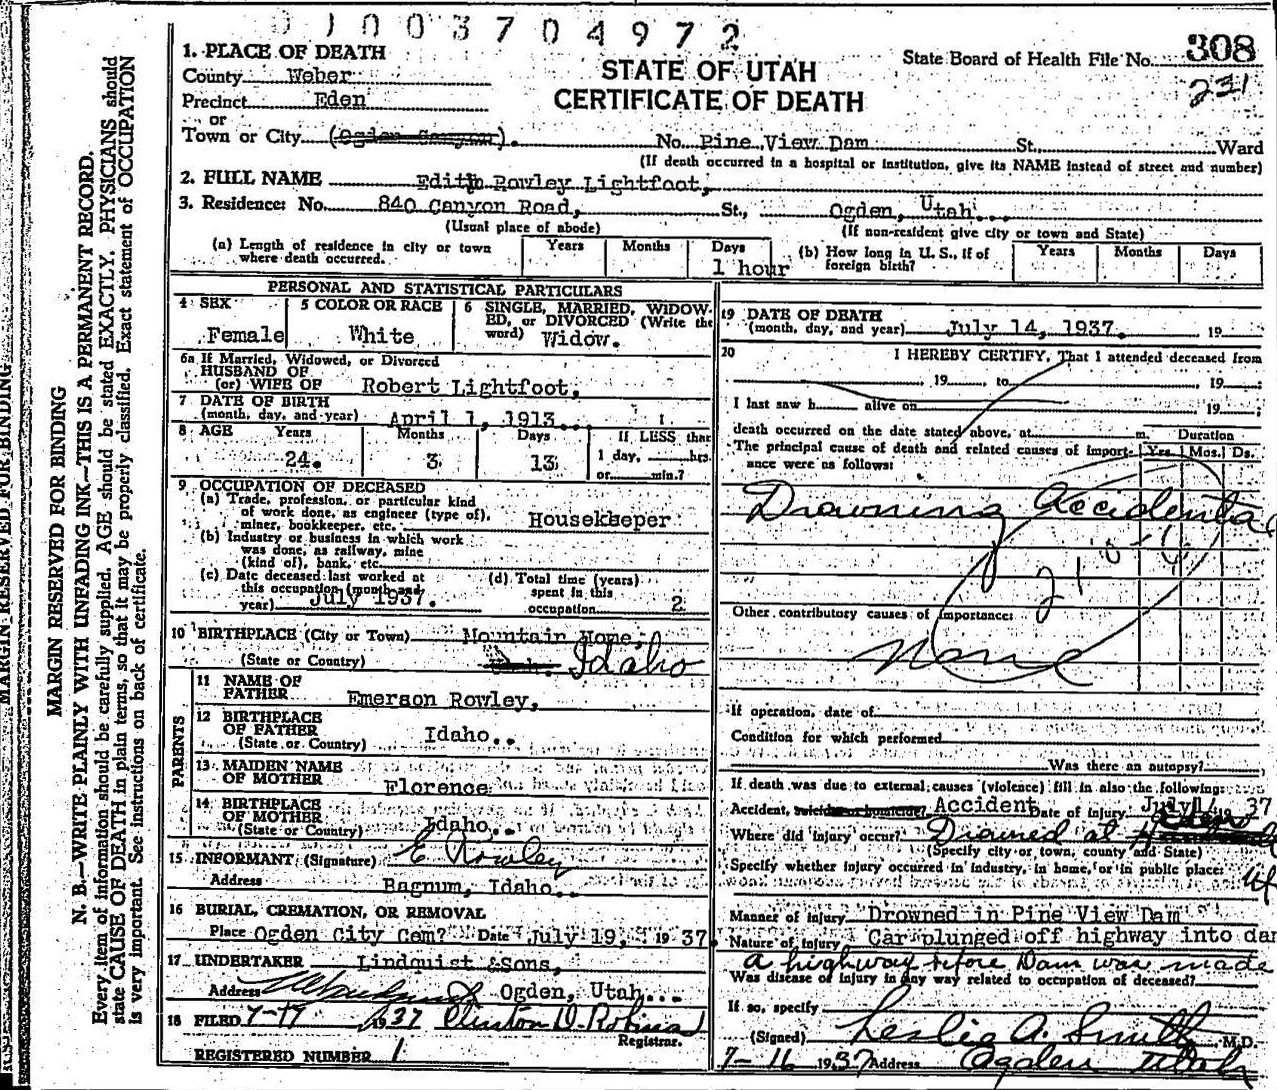 0 1 0 0 3 7 0 4 9 7 2
1. PLACE OF DEATH
County Weber
Precinct Eden
or
Town or City (Ogden Canyon).
STATE OF UTAH
CERTIFICATE OF DEATH
State Board of Health File No. 308
231
No. Pine View Dam St., Ward
(If death occurred in a hospital or institution, give its NAME instead of street and number)
2. FULL NAME Edith Rowley Lightfoot,
3. Residence: No. 840 Canyon Road, St., Ogden, Utah.
(Usual place of abode) (If non-resident give city or town and State)
(a) Length of residence in city or town where death occurred. Years Months Days 1 hour
(b) How long in U. S., if of foreign birth? Years Months Days
PERSONAL AND STATISTICAL PARTICULARS
4 SEX Female
5 COLOR OR RACE White
6 SINGLE, MARRIED, WIDOWED, or DIVORCED (Write the word) Widow.
6a If Married, Widowed, or Divorced
HUSBAND OF
(or) WIFE OF Robert Lightfoot,
7 DATE OF BIRTH
(month, day, and year) April 1, 1913.
8 AGE Years Months Days If LESS than
24. 3 13 1 day, hrs.
or min.?
9 OCCUPATION OF DECEASED
(a) Trade, profession, or particular kind
of work done, as engineer (type of),
miner, bookkeeper, etc. Housekeeper
(b) Industry or business in which work
was done, as railway, mine
(kind of), bank, etc.
(c) Date deceased last worked at
this occupation (month and
year) July 1937.
(d) Total time (years)
spent in this
occupation 2
10 BIRTHPLACE (City or Town) Mountain Home,
(State or Country) Idaho
PARENTS
11 NAME OF
FATHER Emerson Rowley,
12 BIRTHPLACE
OF FATHER Idaho..
(State or Country)
13 MAIDEN NAME
OF MOTHER Florence
14 BIRTHPLACE
OF MOTHER Idaho..
(State or Country)
15 INFORMANT (Signature) E Rowley
Address Bagnum, Idaho..
16 BURIAL, CREMATION, OR REMOVAL
Place Ogden City Cem? Date July 19, 1937.
17 UNDERTAKER Lindquist & Sons,
Address Ogden, Utah...
18 FILED 1937 Clinton D. Robins
Registrar.
REGISTERED NUMBER 1
19 DATE OF DEATH
(month, day, and year) July 14, 1937. 19
20 I HEREBY CERTIFY, That I attended deceased from
, 19 , to , 19 ;
I last saw h alive on , 19 ;
death occurred on the date stated above, at m. Duration
The principal cause of death and related causes of importance were as follows: Yrs. Mos. Ds.
Drowning Accidental
Other contributory causes of importance:
None
If operation, date of
Condition for which performed
Was there an autopsy?
If death was due to external causes (violence) fill in also the following:
Accident, suicide or homicide? Accident Date of injury July 14 37
Where did injury occur? Drowned at
(Specify city or town, county and State)
Specify whether injury occurred in industry, in home, or in public place:
Manner of injury Drowned in Pine View Dam
Nature of injury Car plunged off highway into dam
a highway before Dam was made
Was disease of injury in any way related to occupation of deceased?
If so, specify
(Signed) Leslie A. Smith M.D.
7-16 1937 Address Ogden Utah
MARGIN RESERVED FOR BINDING
MARGIN RESERVED FOR BINDING
N. B.—WRITE PLAINLY WITH UNFADING INK—THIS IS A PERMANENT RECORD.
Every item of information should be carefully supplied. AGE should be stated EXACTLY. PHYSICIANS should
state CAUSE OF DEATH in plain terms, so that it may be properly classified. Exact statement of OCCUPATION
is very important. See instructions on back of certificate.